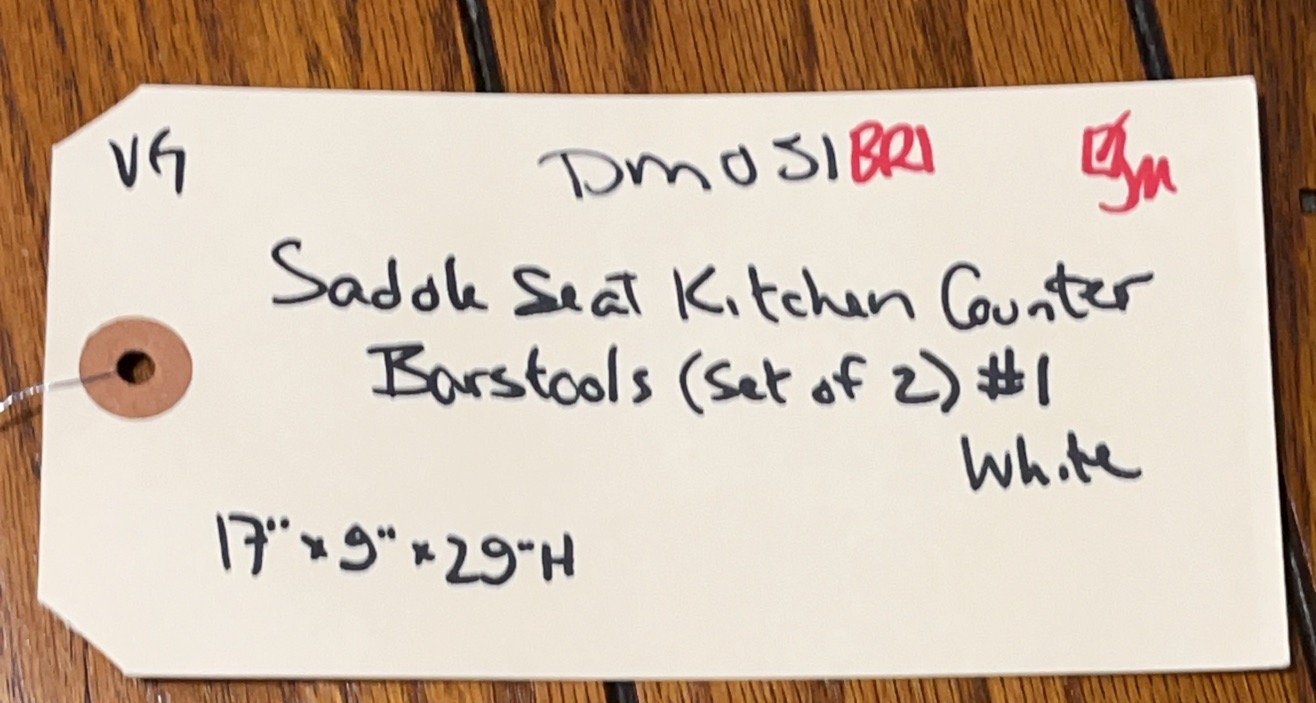 VG DM051BR1 ☑JM
Saddle Seat Kitchen Counter
Barstools (Set of 2) #1
White
17" x 9" x 29"H